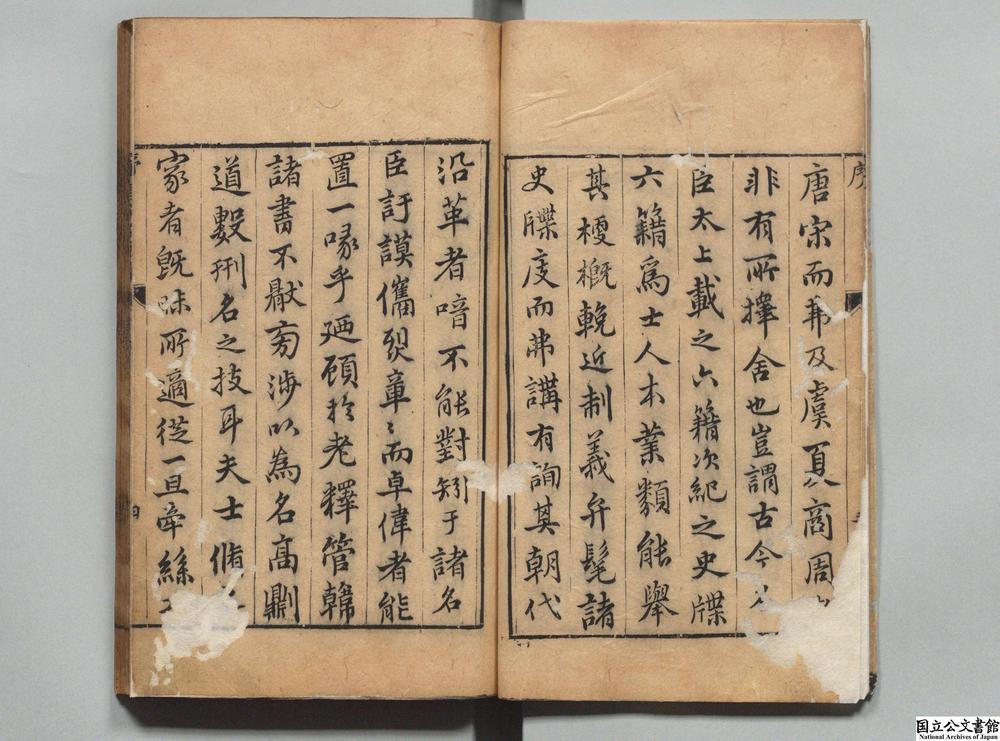 序
唐宋而弗及虞夏商周
非有所擇舍也豈謂古今
臣太上載之六籍次紀之史牒
六籍爲士人本業類能舉
其梗槪輓近制義弁髦諸
史牒庋而弗講有詢其朝代
沿革者喑不能對矧于諸名
臣訏謨儁烈章〻而卓偉者能
置一喙乎廼顧於老釋管韓
諸書不厭旁涉以為名高劘
道數刑名之技耳夫士脩
家者旣昧所適從一旦牽絲
序
四
国立公文書館
National Archives of Japan